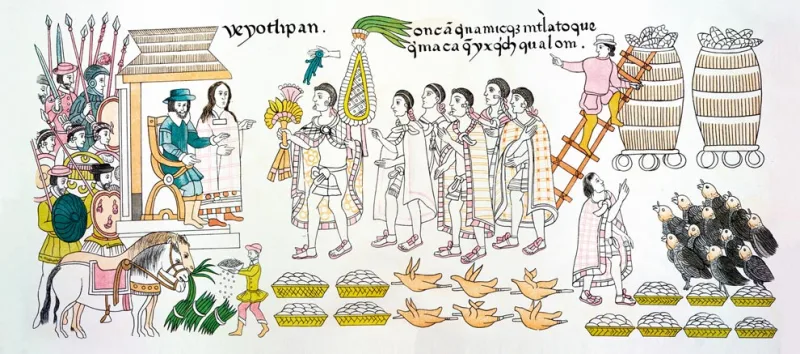 veyothpan.
oncā q̄namicqʒ mt̄latoque
q̄maca q̄yxq̄ch qualom.